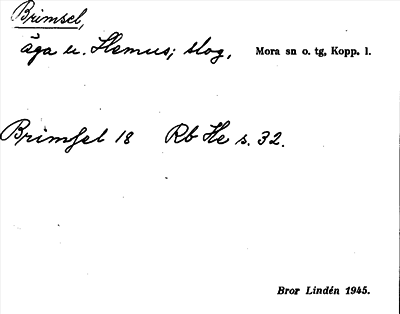 Brimsel,
äga u. Hemus; slog, Mora sn o. tg, Kopp. l.
Brimsel 18 Rb He s. 32.
Bror Lindén 1945.